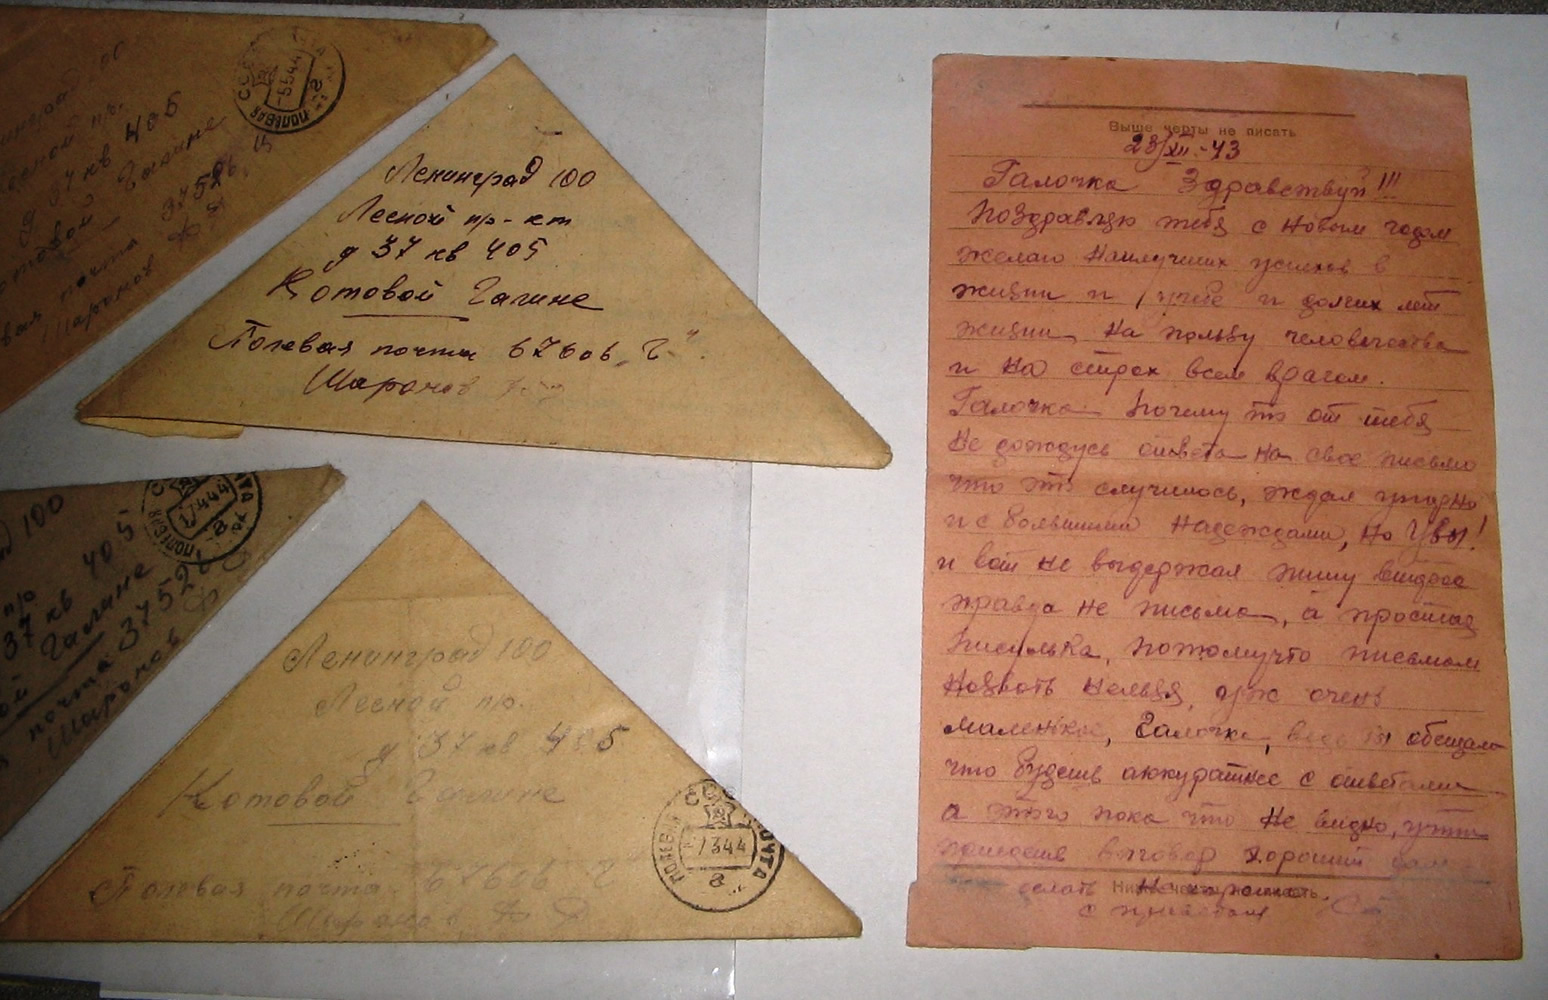 нинград 100
Лесной пр.
д 37 кв 405
Котовой Галине
вая почта 37526
Шаронов
ПОЛЕВАЯ ПОЧТА СССР
-5544
а
Ленинград 100
Лесной пр-кт
д 37 кв 405
Котовой Галине
Полевая почта 67606 „Г“
Шаронов
д 100
пр
37 кв 405
ой Галине
я почта 37526
Шаронов
ПОЛЕВАЯ
17444
а
Ленинград 100
Лесной пр.
д 37 кв 405
Котовой Галине
Полевая почта 67606 Г
Шаронов
ПОЛЕВАЯ ПОЧТА СССР
-7344
а
Выше черты не писать
23/XII-43
Галочка Здравствуй!!!
Поздравляю тебя с новым годом
желаю наилучших успехов в
жизни и учебе и долгих лет
жизни на пользу человечества
и на страх всем врагам.
Галочка почему то от тебя
не дождусь ответа на свое письмо
что это случилось, ждал упорно
и с большими надеждами, но Увы!
и вот не выдержал пишу второе
правда не письмо, а простая
писулька, потому что письмом
назвать нельзя, уж очень
маленькое, Галочка, ведь ты обещала
что будешь аккуратнее с ответами
а этого пока что не видно, учти
выговор хороший
делать Ниже черты не писать
с приветом